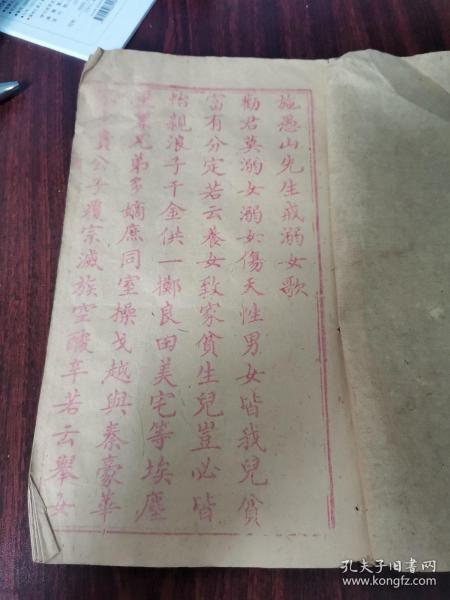 施愚山先生戒溺女歌
勸君莫溺女溺女傷天性男女皆我兒貧
富有分定若云養女致家貧生兒豈必皆
怡親浪子千金供一擲良田美宅等埃塵
兄弟多嫡庶同室操戈越與秦豪華
貴公子覆宗滅族空酸辛若云舉女
孔夫子旧书网
www.kongfz.com